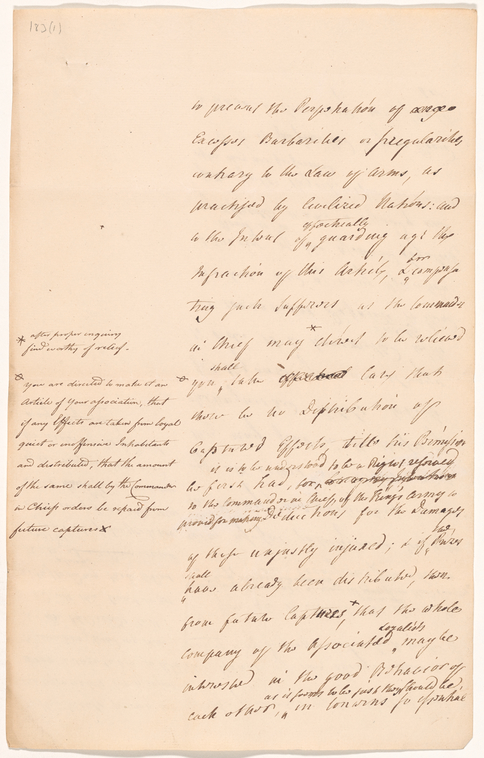 133(1)
to prevent the Perpetration of
Excesses Barbarities or Irregularities
contrary to the Law of Arms, as
practised by Civilized Nations: and
effectually
to the Intent of guarding agt the
Infraction of this Article, & for compensa
ting such Sufferers as the Command
in Chief may * direct to be relieved
shall
you, take Care that
there be no Distribution of
Captured Effects, till his Permission
it is to be understood to be a Right reserved
be first had, for
to the Commander in Chief of the King's Army to
provide for making Deductions for the Damages
of those unjustly injured; & if the
shall
have already been distributed, then
from future Captures, + that the whole
Loyalists
company of the Associated may be
interested in the good Behavior of
as it seems to be just they should be,
each other, in Concerns so essential
* after proper inquiry
find worthy of relief.
you are directed to make it an
Article of your association, that
if any Effects are taken from Loyal
quiet or inoffensive Inhabitants
and distributed, that the amount
of the same shall by the Commander
in Chiefs orders be repaid from
future captures x